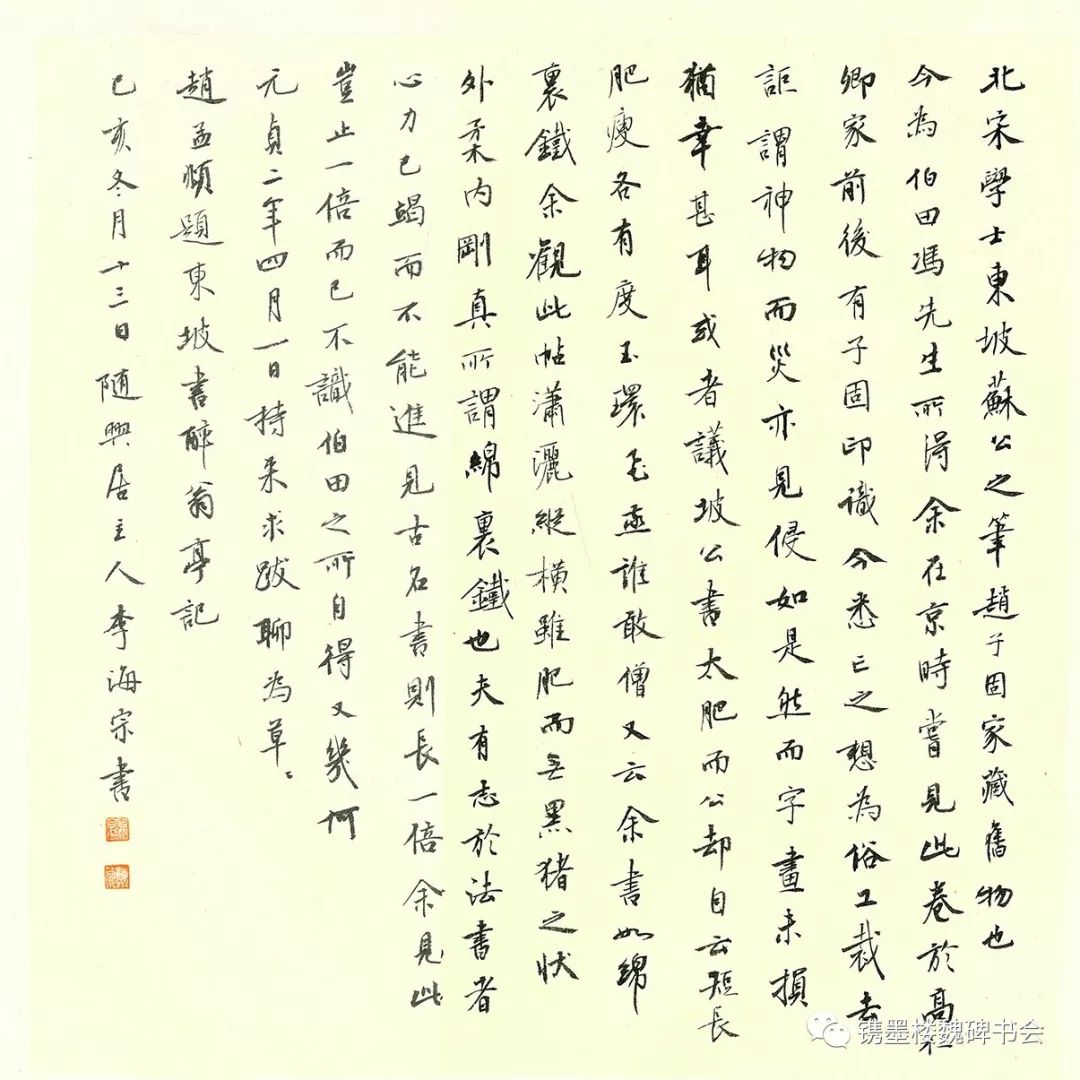 北宋學士東坡蘇公之筆趙子固家藏舊物也
今為伯田馮先生所得余在京時嘗見此卷於高仁
卿家前後有子固印識今悉亡之想為俗工裁去
詎謂神物而災亦見侵如是然而字畫未損
猶幸甚耳或者議坡公書太肥而公却自云短長
肥瘦各有度玉環飛燕誰敢憎又云余書如綿
裏鐵余觀此帖瀟灑縱橫雖肥而無墨猪之狀
外柔内剛真所謂綿裏鐵也夫有志於法書者
心力已竭而不能進見古名書則長一倍余見此
豈止一倍而已不識伯田之所自得又幾何
元貞二年四月一日持来求跋聊為草〻
趙孟頫題東坡書醉翁亭記
己亥冬月十三日随興居主人李海宗書
镌墨楼魏碑书会